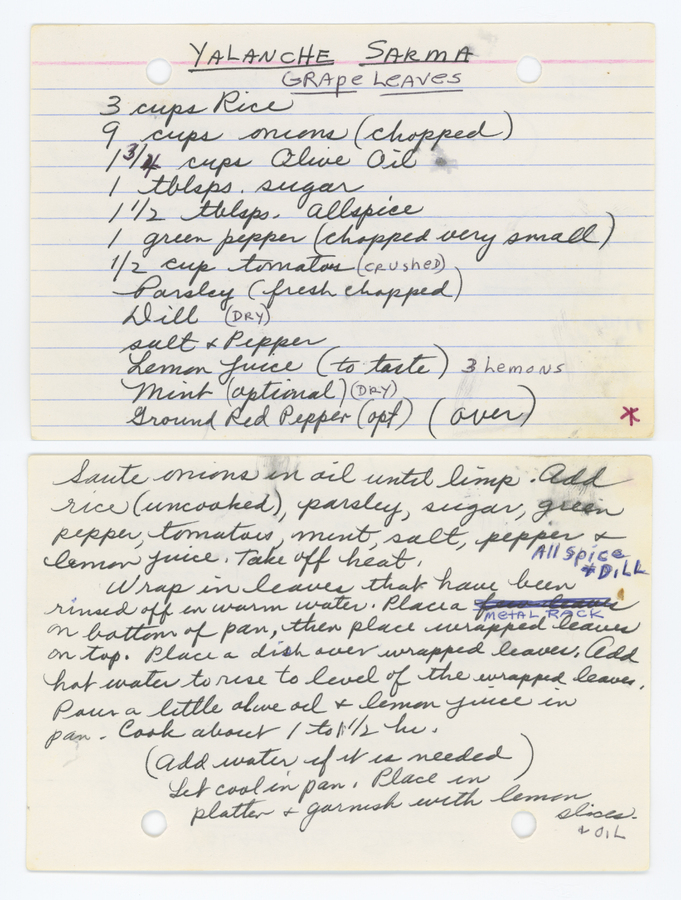 YALANCHE SARMA
GRAPE LEAVES
3 cups Rice
9 cups onions (chopped)
1 3/4 cups Olive Oil
1 tblsps. sugar
1 1/2 tblsps. Allspice
1 green pepper (chopped very small)
1/2 cup tomatoes (CRUSHED)
Parsley (fresh chopped)
Dill (DRY)
salt & Pepper
Lemon Juice (to taste) 3 Lemons
Mint (optional) (DRY)
Ground Red Pepper (opt) (over)
*
Saute onions in oil until limp. Add
rice (uncooked), parsley, sugar, green
pepper, tomatoes, mint, salt, pepper &
lemon juice. Take off heat. All Spice
+ DILL
Wrap in leaves that have been
rinsed off in warm water. Place a few leaves
METAL RACK
on bottom of pan, then place wrapped leaves
on top. Place a dish over wrapped leaves. Add
hot water to rise to level of the wrapped leaves.
Pour a little olive oil & lemon juice in
pan. Cook about 1 to 1 1/2 hr.
(Add water if it is needed)
Let cool in pan. Place in
platter & garnish with lemon
slices.
& OIL